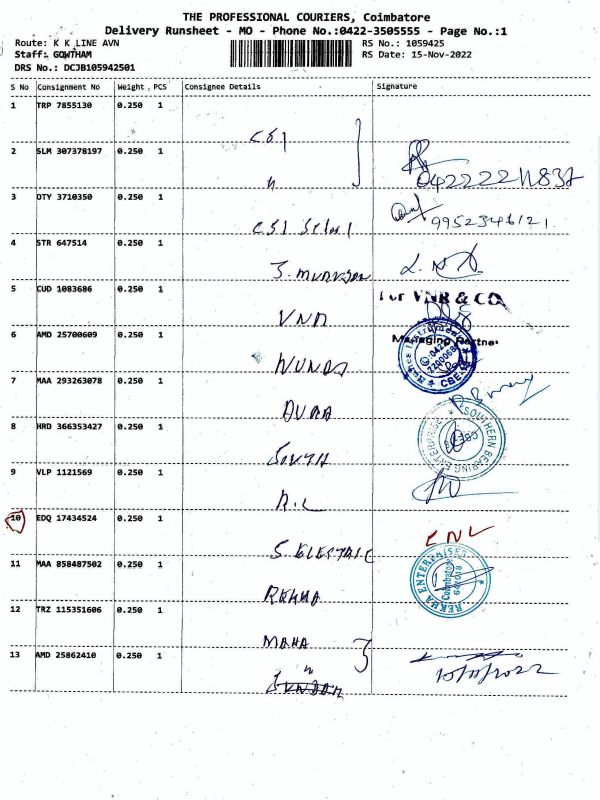 THE PROFESSIONAL COURIERS, Coimbatore
Delivery Runsheet - MO - Phone No.:0422-3505555 - Page No.:1
Route: K K LINE AVN
RS No.: 1059425
Staff: GOWTHAM
RS Date: 15-Nov-2022
DRS No.: DCJB105942501
S No Consignment No Weight PCS Consignee Details Signature
1 TRP 7855130 0.250 1
CSI
2 SLM 307378197 0.250 1
"
3 OTY 3710350 0.250 1
9952346121
4 STR 647514 0.250 1
5 CUD 1083686 0.250 1
For VNR & CO.
VNR
Managing Partner
6 AMD 25700609 0.250 1
7 MAA 293263078 0.250 1
DURA
8 HRD 366353427 0.250 1
SOUTHERN BEARING ENTERPRISE
SOUTH
9 VLP 1121569 0.250 1
R.L
10 EDQ 17434524 0.250 1
CNL
S. ELECTRIC
11 MAA 858487502 0.250 1
REKHA ENTERPRISES
Coimbatore
641 018
REKHA
12 TRZ 115351606 0.250 1
MAHA
13 AMD 25862410 0.250 1
"
15/11/2022